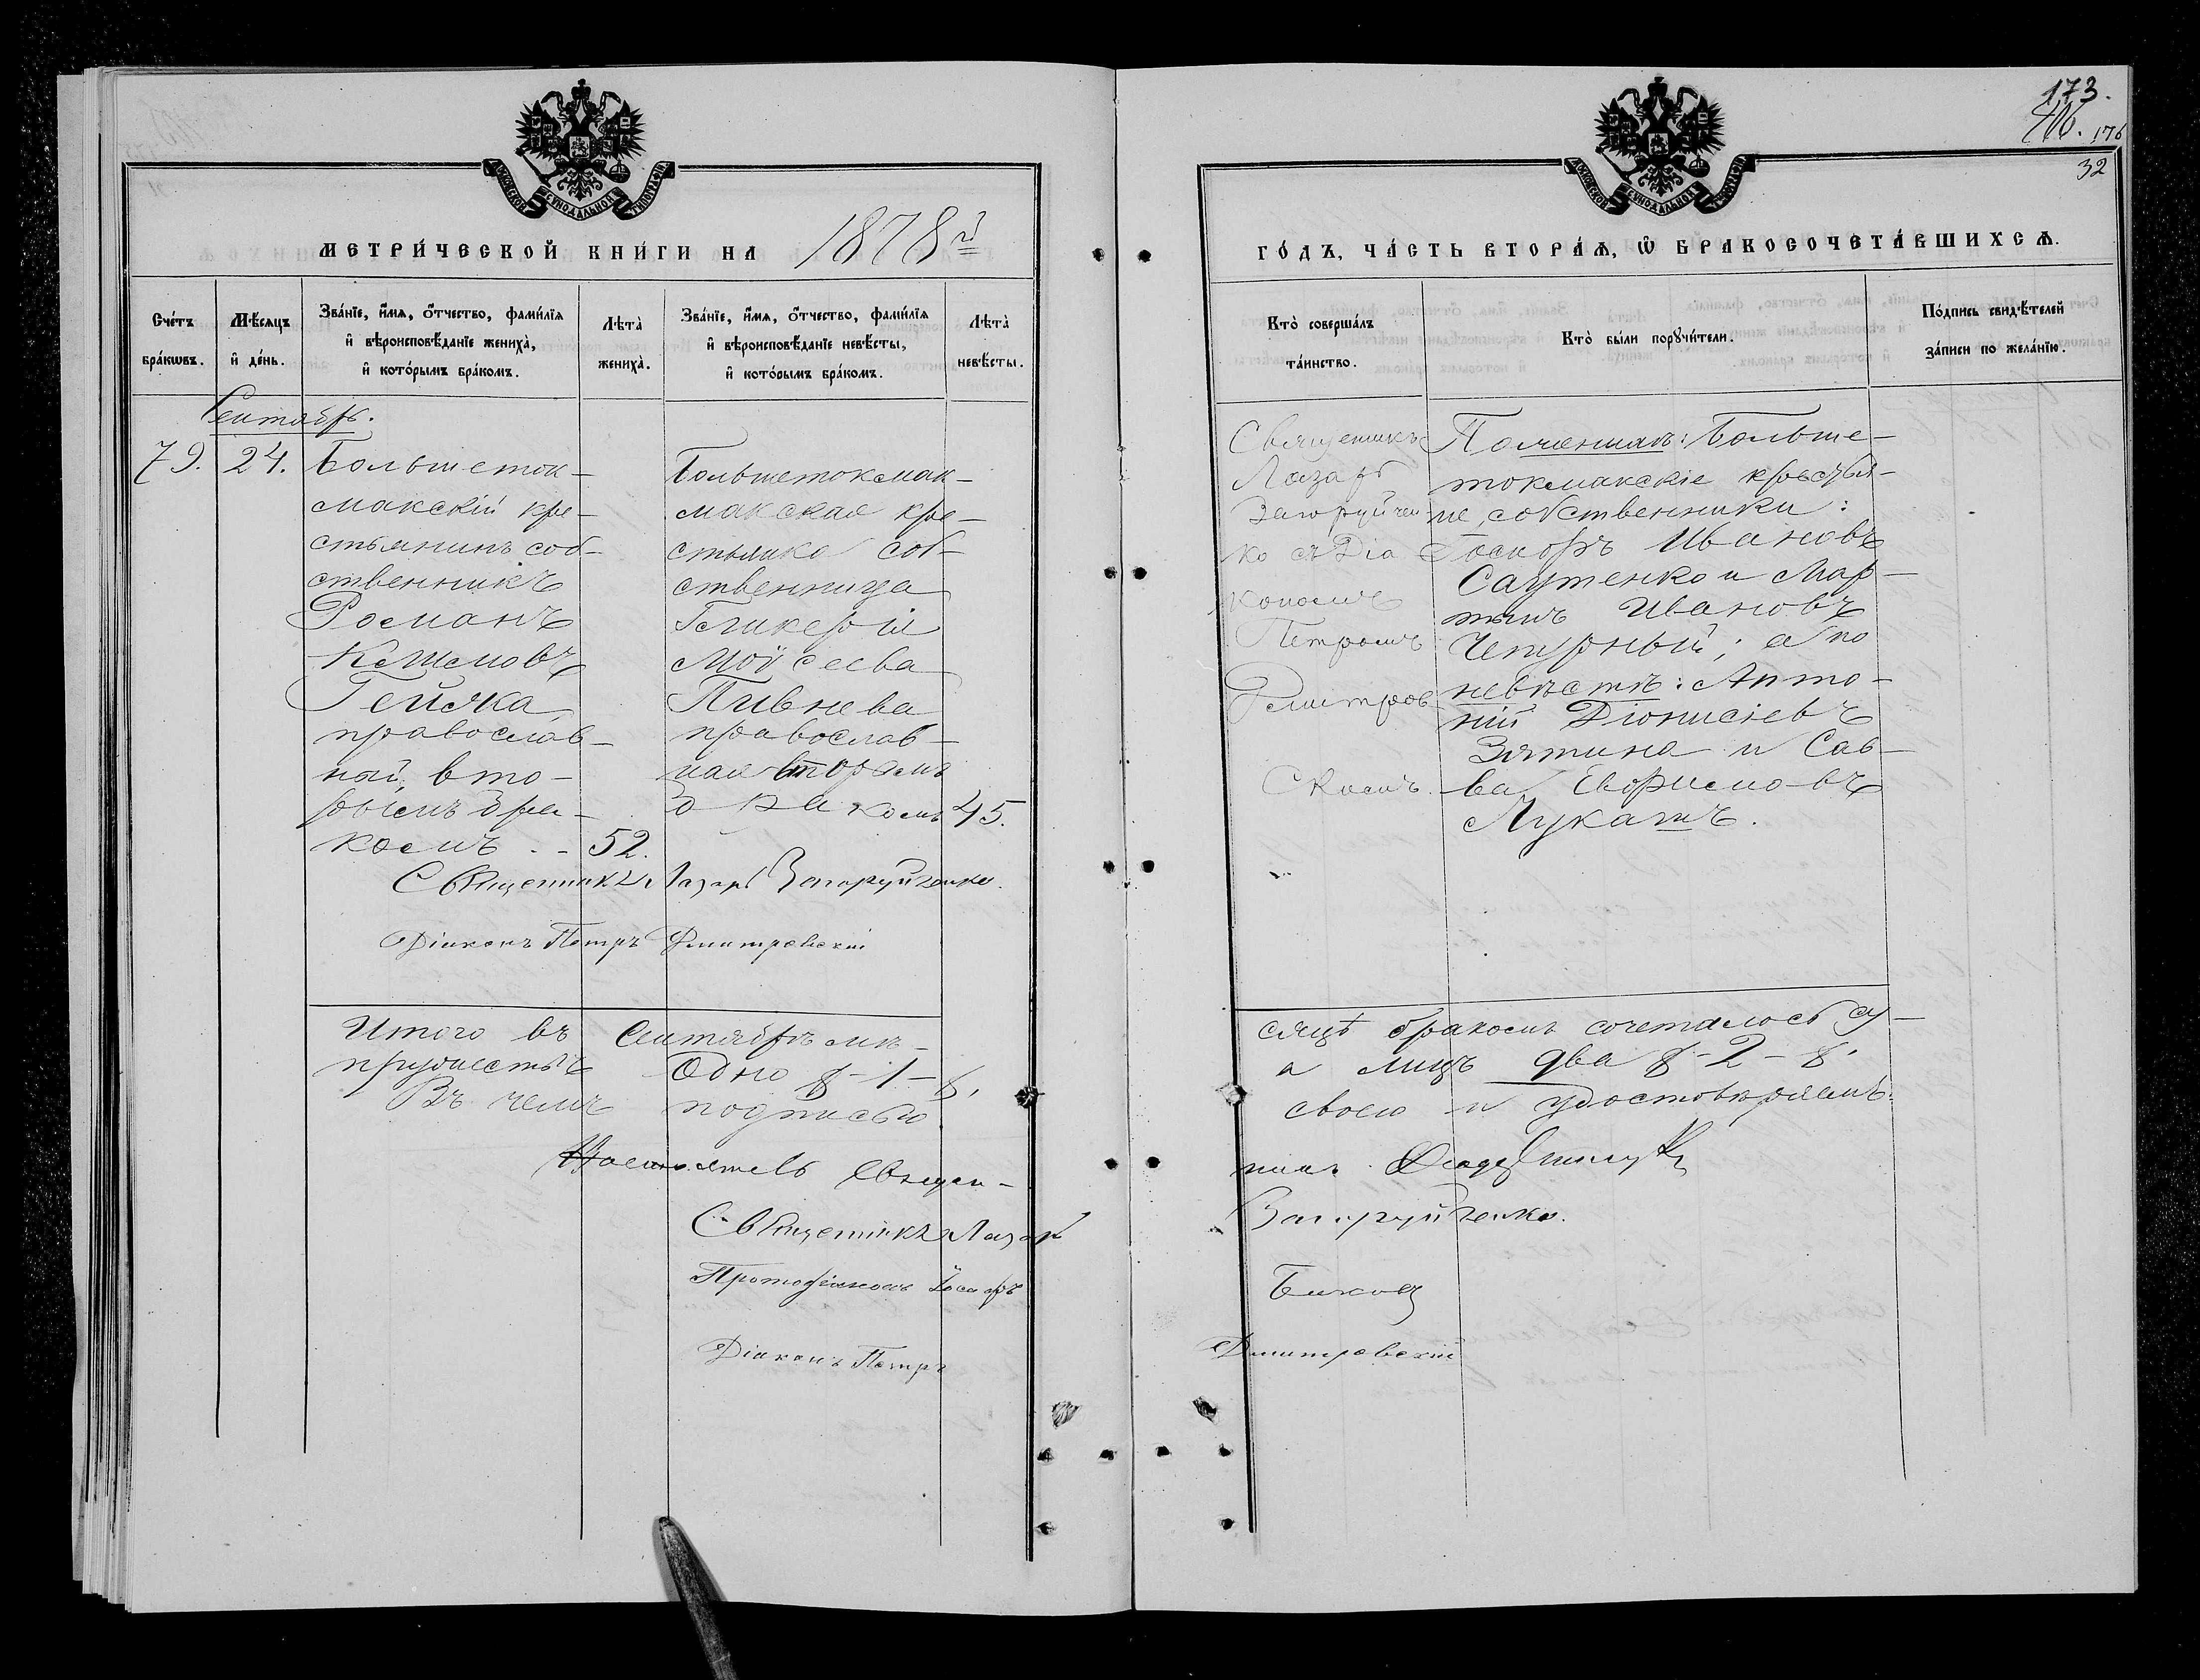 173.
176
32
МОСКОВСКОЙ СѴНОДАЛЬНОЙ ТИПОГРАФІИ
МОСКОВСКОЙ СѴНОДАЛЬНОЙ ТИПОГРАФІИ
МЕТРИ́ЧЕСКОЙ КНИ́ГИ НА 1878й
ГО́ДЪ, ЧА́СТЬ ВТОРА́Ѧ, Ѽ БРАКОСОЧЕТА́ВШИХСѦ.
Сче́тъ
бра́кѡвъ.
Мѣ́сяцъ
и҆ де́нь.
Зва́нїе, и҆́мѧ, ѻ҆́тчество, фами́лїѧ
и҆ вѣроисповѣ́данїе жениха̀,
и҆ кото́рымъ бра́комъ.
Лѣта̀
жениха̀.
Зва́нїе, и҆́мѧ, ѻ҆́тчество, фами́лїѧ
и҆ вѣроисповѣ́данїе невѣ́сты,
и҆ кото́рымъ бра́комъ.
Лѣта̀
невѣ́сты.
Кто̀ соверша́лъ
та́инство.
Кто̀ бы́ли порꙋчи́тели.
По́дпись свидѣ́телей
за́писи по жела́нїю.
Сентябрь.
79.
24.
Большеток-
макскій кре-
стьянинъ соб-
ственникъ
Романъ
Гейчка,
православ-
ный, вто-
рымъ бра-
комъ . . - 52.
Большетокмак-
макская кре-
стьянка соб-
ственница
Гликерія
Моѵсеева
Пивнева
православ-
ная вторымъ
бракомъ 45.
Священникъ
Лазарь
Загоруйчен
ко съ Діа
кономъ
Петромъ
Дмитров
скимъ.
По женихѣ: Больше-
токмакскіе крестья-
не, собственники:
Іосифъ Ивановъ
Саутенко и Мар-
тынъ Ивановъ
Чепурный; а по
невѣстѣ: Анто-
ній Діонисіевъ
Зятина и Сав-
ва
Лукашъ.
Священникъ Лазарь Загоруйченко.
Діаконъ Петръ Дмитровскій
Итого въ Сентябрѣ мѣ-
сяцѣ бракомъ сочеталось су-
пружествъ Одно 8-1-8.
а лицъ два 8-2-8.
Въ чемъ подписью
своею и удостовѣряемъ.
Настоятель Священ-
никъ
Священникъ Лазарь
Загоруйченко.
Протодіаконъ Іосифъ
Діаконъ Петръ
Дмитровскій